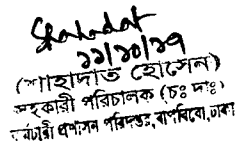 ১১/১০/১৭
(শাহাদাত হোসেন)
সহকারী পরিচালক (চঃ দাঃ)
কর্মচারী প্রশাসন পরিদপ্তর, বাপবিবো, ঢাকা